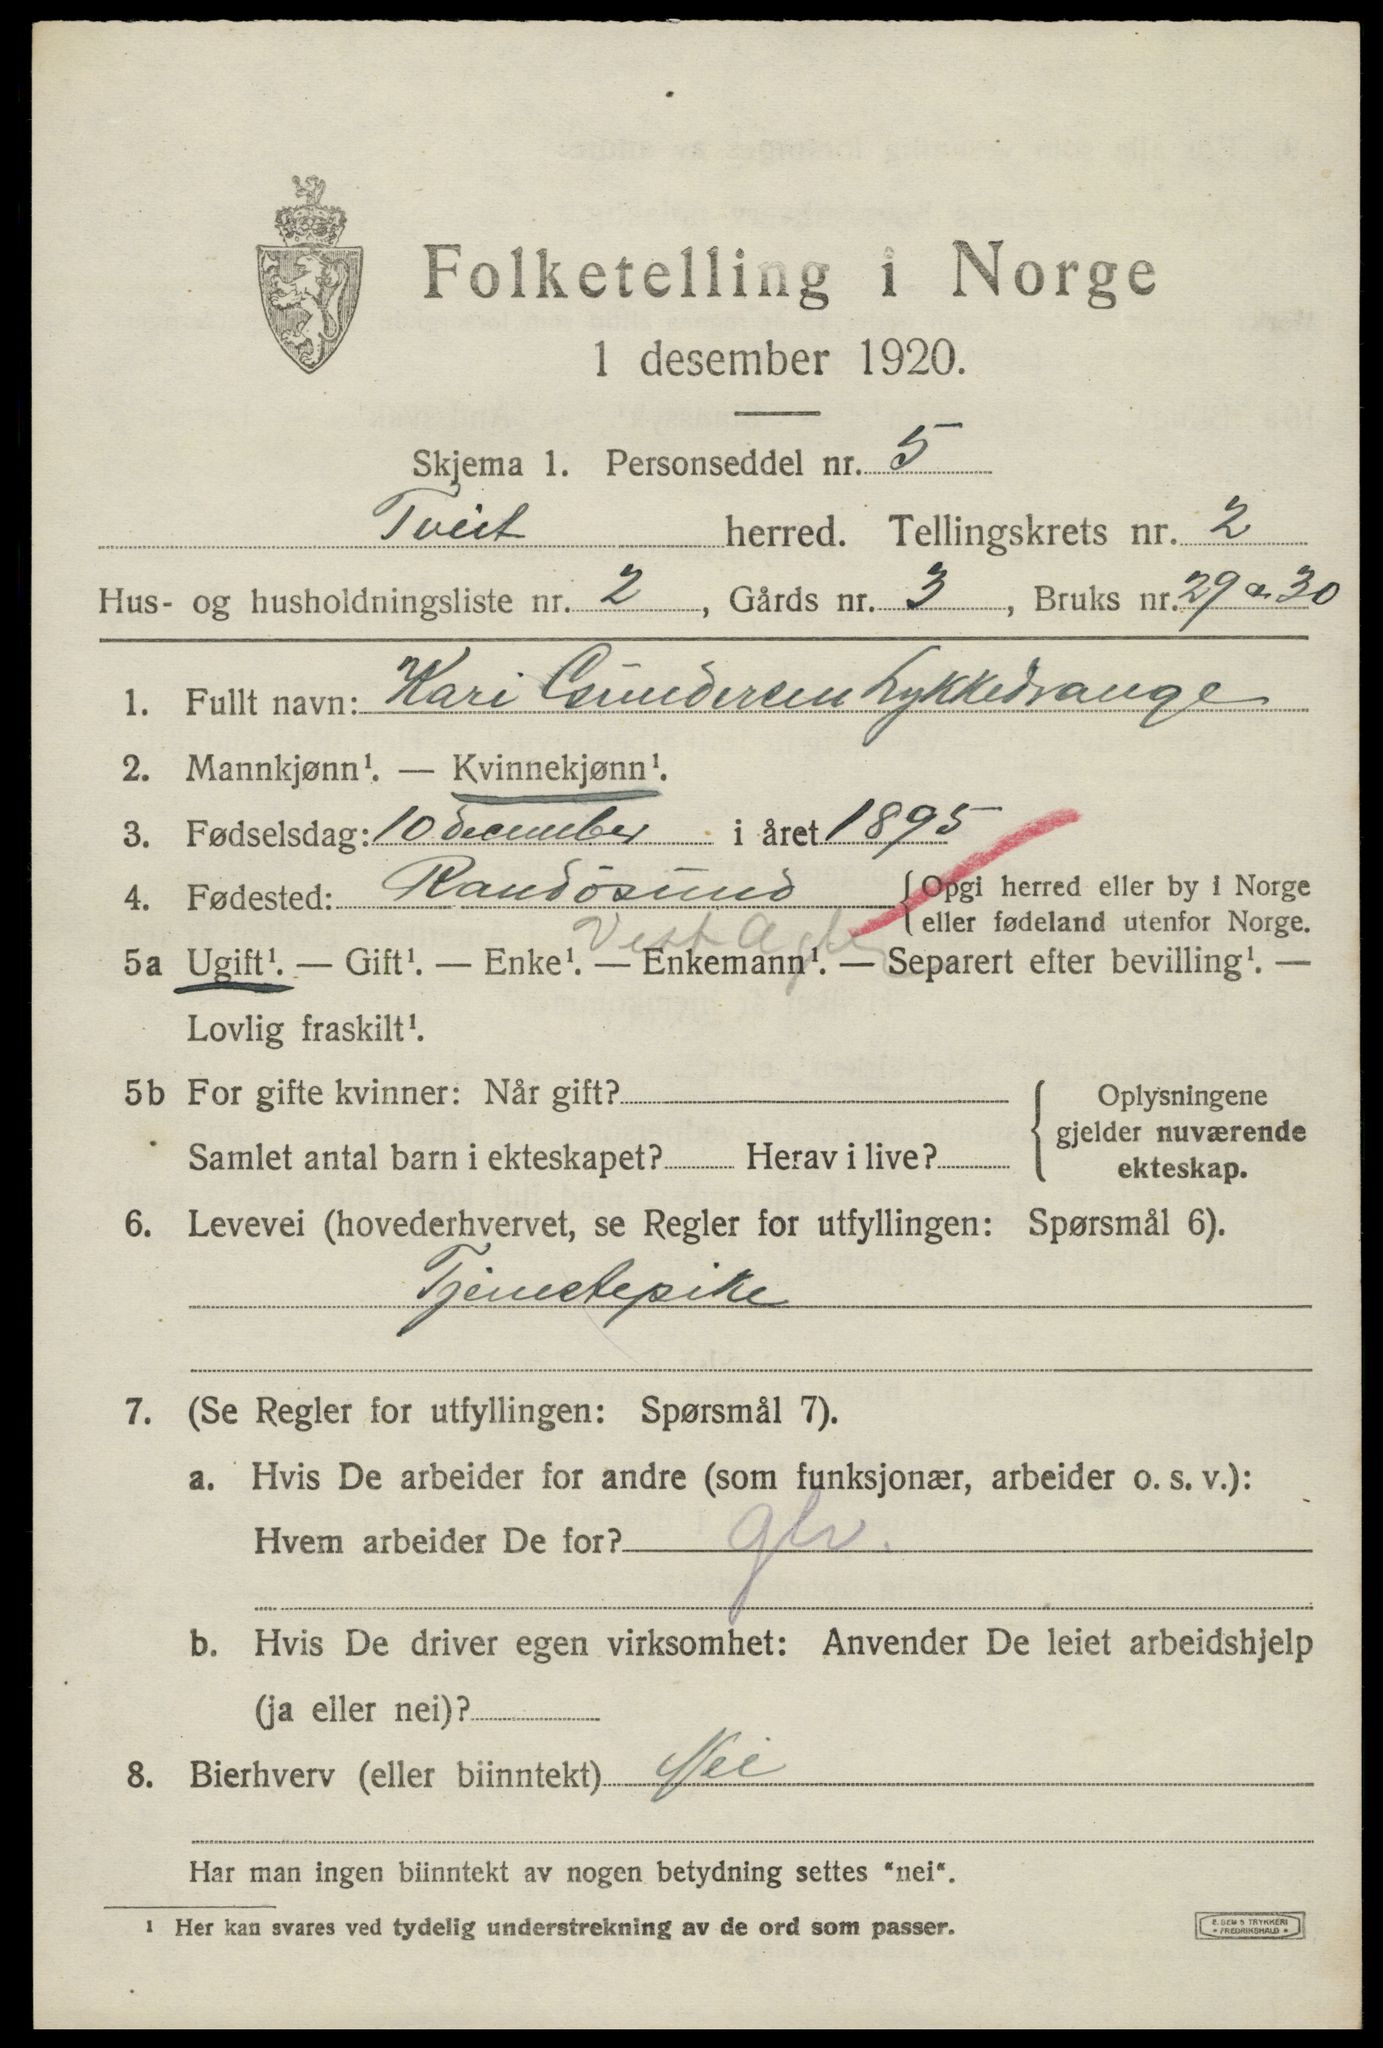 Folketelling i Norge
1 desember 1920.
Skjema 1. Personseddel nr. 5
Tveit herred. Tellingskrets nr. 2
Hus- og husholdningsliste nr. 2, Gårds nr. 3, Bruks nr. 29 & 30
1. Fullt navn: Kari Gundersen Lykkedrange
2. Mannkjønn¹. — Kvinnekjønn¹.
3. Fødselsdag: 10 december i året 1895
4. Fødested: Randösund {Opgi herred eller by i Norge
eller fødeland utenfor Norge.
Vest Agder
5a Ugift¹. — Gift¹. — Enke¹. — Enkemann¹. — Separert efter bevilling¹. —
Lovlig fraskilt¹.
5b For gifte kvinner: Når gift?
Samlet antal barn i ekteskapet? Herav i live?
Oplysningene
gjelder nuværende
ekteskap.
6. Levevei (hovederhvervet, se Regler for utfyllingen: Spørsmål 6).
Tjenestepike
7. (Se Regler for utfyllingen: Spørsmål 7).
a. Hvis De arbeider for andre (som funksjonær, arbeider o. s. v.):
Hvem arbeider De for?
b. Hvis De driver egen virksomhet: Anvender De leiet arbeidshjelp
(ja eller nei)?
8. Bierhverv (eller biinntekt) Nei
Har man ingen biinntekt av nogen betydning settes "nei".
¹ Her kan svares ved tydelig understrekning av de ord som passer.
E. SEM'S TRYKKERI
• FREDRIKSHALD •